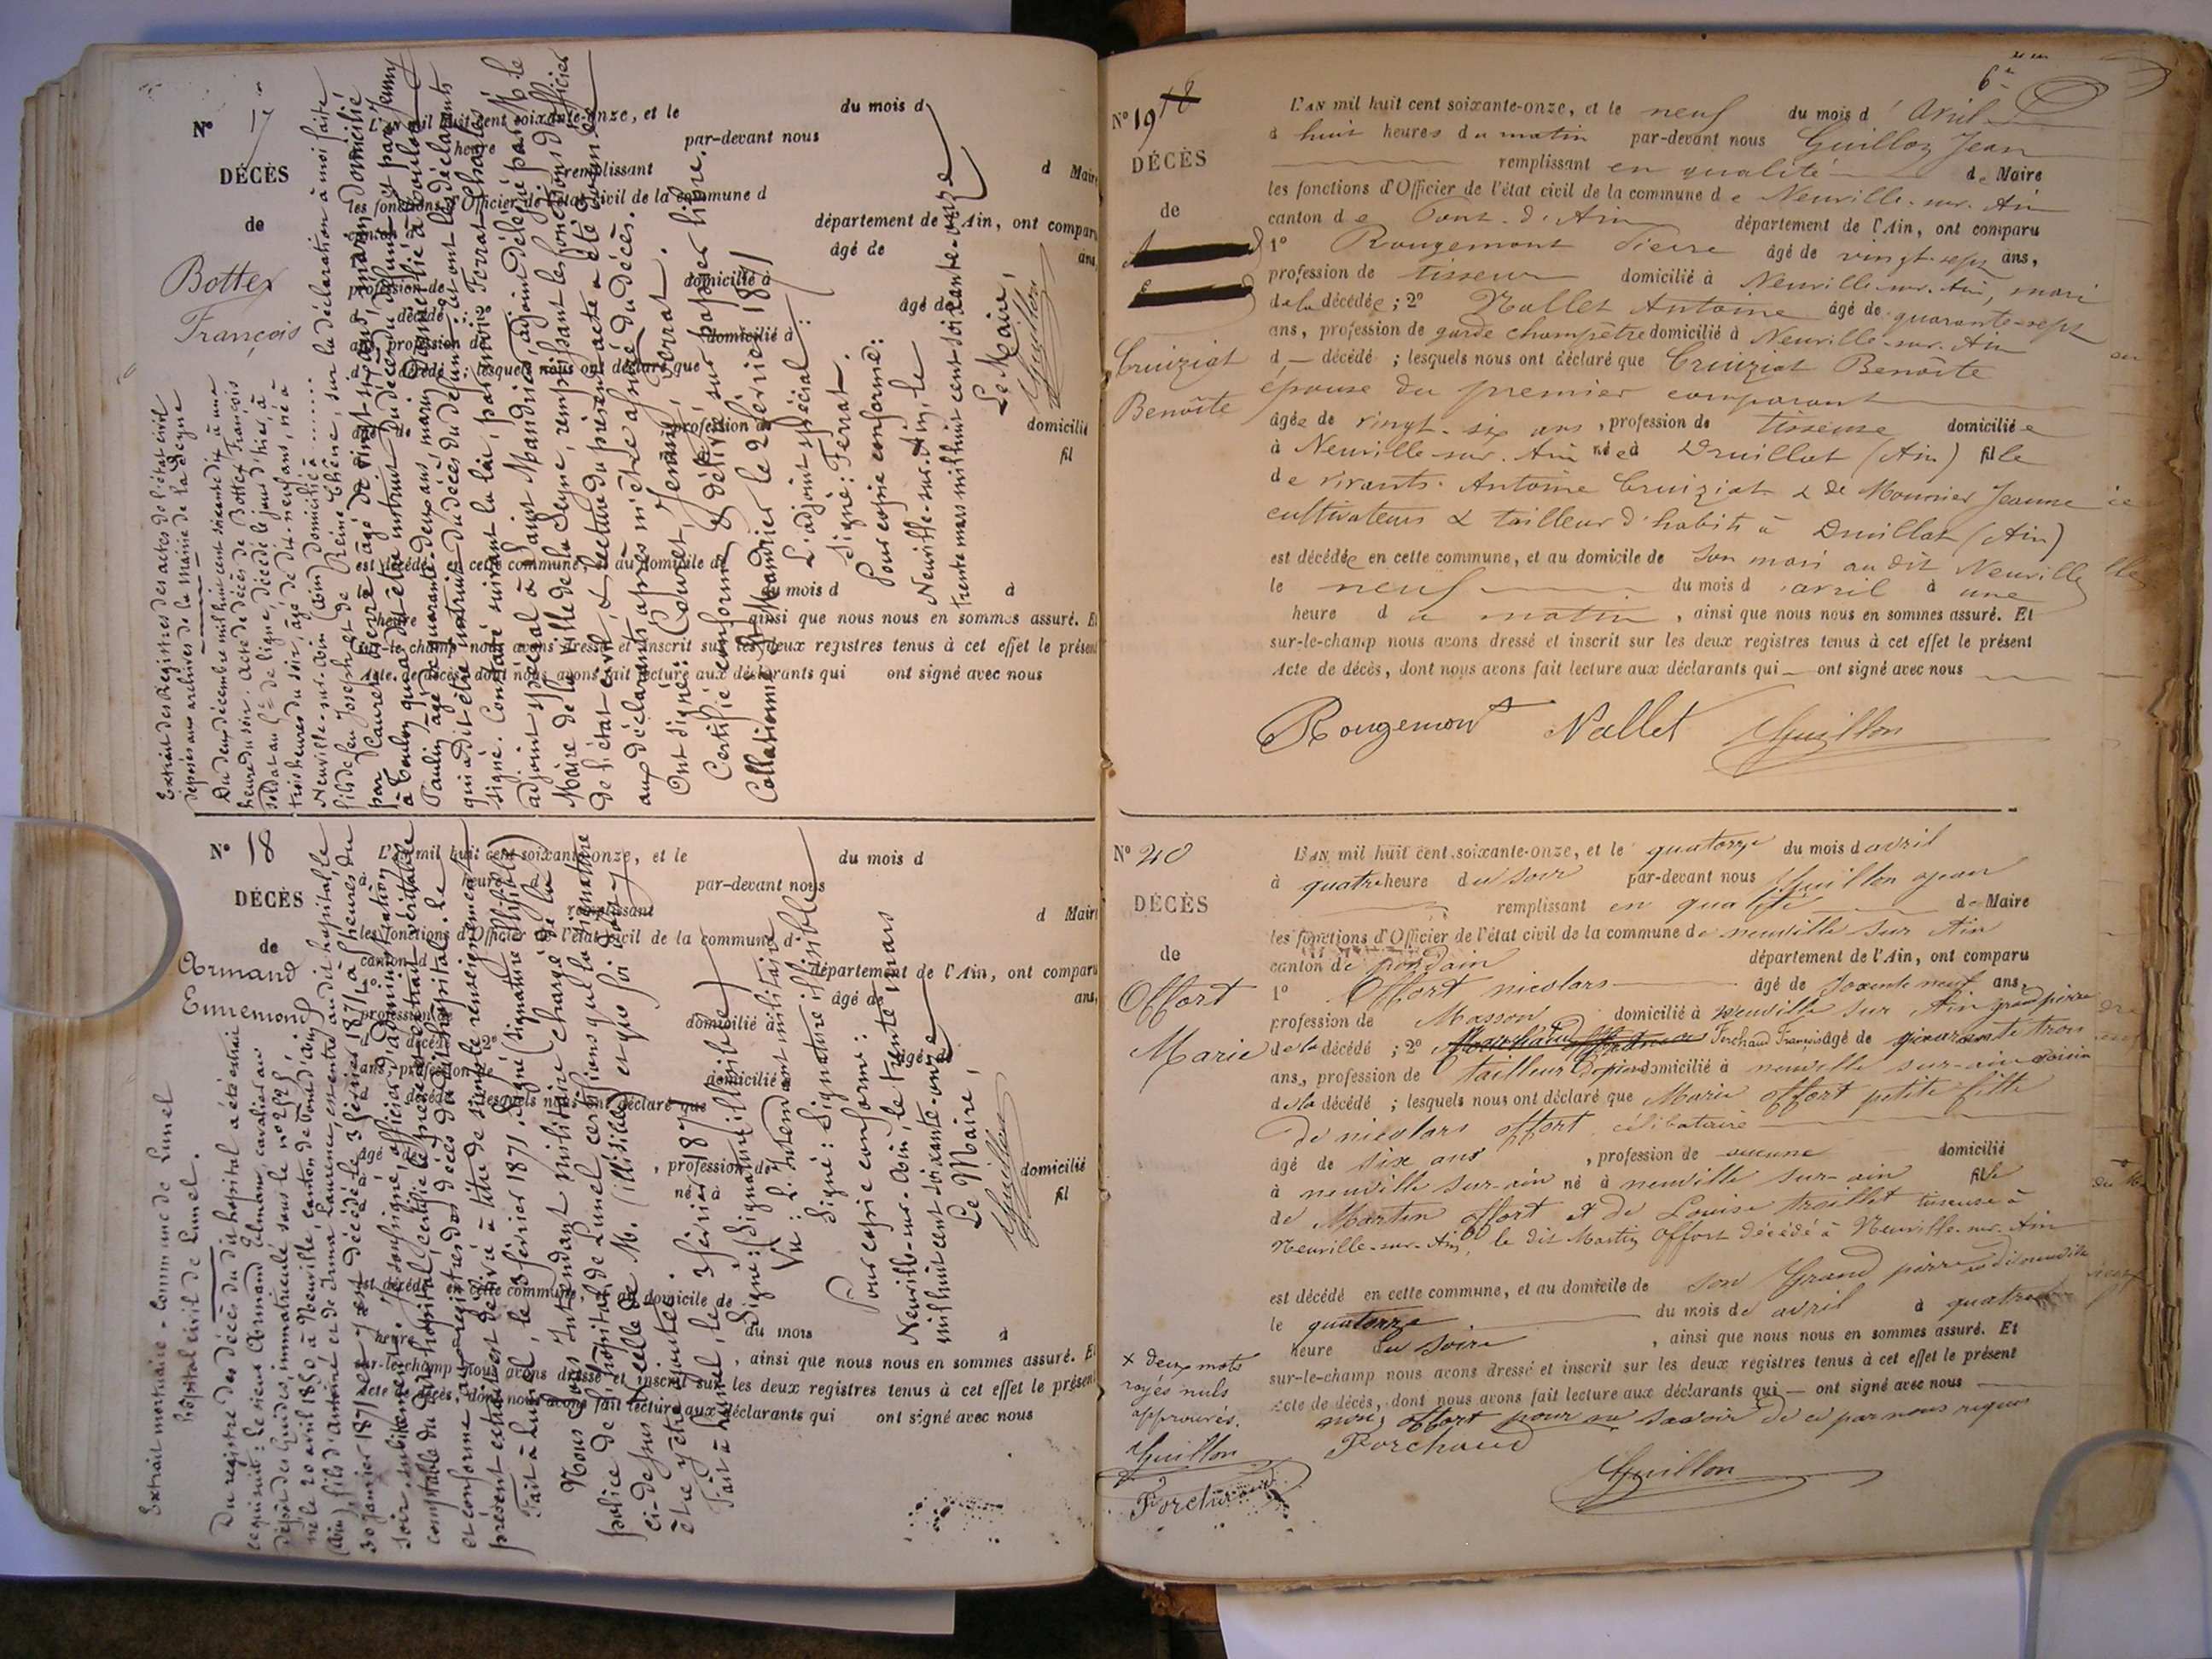 N° 17
DÉCÈS
de
Bottex
François
L'AN mil huit cent soixante-onze, et le du mois d
heure par-devant nous
remplissant d Maire
les fonctions d'Officier de l'état civil de la commune d
canton d département de l'Ain, ont comparu
âgé de ans,
profession de domicilié à
d décédé ; âgé de
ans, profession de domicilié à
d décédé ; lesquels nous ont déclaré que
âgé de profession de domicilié
fil
est décédé en cette commune, et au domicile de
du mois d à
heure ainsi que nous nous en sommes assuré. Et
sur-le-champ nous avons dressé et inscrit sur les deux registres tenus à cet effet le présent
Acte de décès, dont nous avons fait lecture aux déclarants qui ont signé avec nous
Extrait des Registres des actes de l'état civil
déposés aux archives de la mairie de la Seyne
Du deux décembre mil huit cent soixante dix à une
heure du soir. Acte de décès de Bottex François
soldat au de ligne, décédé le jour d'hier, à
trois heures du soir, âgé de dix-neuf ans, né à
Neuville-sur-Ain (Ain) domicilié à ......
fils de feu Joseph et de Reine Chêne, sur la déclaration à moi faite
par Cauvet Pierre âgé de vingt six ans, marin domicilié
à Toulon qui a dit être instruit du décès du défunt et par Jenny
Paulin âgé de quarante-deux ans, marin domicilié à Toulon
qui a dit être instruit du décès du défunt et ont les déclarants
signé. Constaté suivant la loi, par moi Ferrat Charles
adjoint spécial à Saint Mandrier, adjoint délégué par M. le
Maire de la ville de la Seyne, remplissant les fonctions d'officier
de l'état civil, & lecture du présent acte a été donnée
aux déclarants après m'être assuré du décès.
Ont signé: Cauvet, Jenny, Ferrat.
Certifié conforme & délivré sur papier libre.
Collationné St Mandrier le 2 février 1871
L'adjoint spécial:
Signé: Ferrat.
Pour copie conforme:
Neuville-sur-Ain, le
trente mars mil huit cent soixante-onze
Le Maire,
Guillon
N° 18
DÉCÈS
de
Armand
Ennemond
L'AN mil huit cent soixante-onze, et le du mois d
à heure d par-devant nous
remplissant d Maire
les fonctions d'Officier de l'état civil de la commune d
canton d département de l'Ain, ont comparu
1° âgé de ans,
profession de domicilié à
d décédé ; 2° âgé de
ans, profession de domicilié
d décédé ; lesquels nous ont déclaré que
âgé de , profession de domicilié
né à fil
est décédé en cette commune, et au domicile de
du mois à
heure , ainsi que nous nous en sommes assuré. Et
sur-le-champ nous avons dressé et inscrit sur les deux registres tenus à cet effet le présent
Acte de décès, dont nous avons fait lecture aux déclarants qui ont signé avec nous
Extrait mortuaire - Commune de Lunel
hôpital civil de Lunel.
Du registre des décès du dit hôpital a été extrait
ce qui suit: le sieur Armand Ennemond, cavalier au
dépôt des Guides, immatriculé sous le n° 2525,
né le 20 avril 1850 à Neuville, canton de Pont d'ain
(Ain), fils d'Antoine et de Irma Laurence, est entré au dit hôpital, le
30 janvier 1871 et y est décédé le 3 février 1871, à heures du
soir, subitement. Je soussigné, officier d'administration
comptable du dit hôpital, certifie le présent extrait véritable
et conforme aux registres des décès du dit hôpital. Le
présent extrait est délivré à titre de simple renseignement
Fait à Lunel, le 3 février 1871. Signé (signature illisible)
Nous Sous Intendant militaire chargé de la
police de l'hôpital de Lunel certifions que la signature
ci-dessus est celle de M. (illisible) et que foi doit y
être ajoutée.
Fait à Lunel, le 3 février 1871
Signé: (Signature illisible)
Vu: L'Intendant militaire
Signé: Signature illisible
Pour copie conforme:
Neuville-sur-Ain, le trente mars
mil huit cent soixante-onze
Le Maire,
Guillon
6e
N° 19 18
DÉCÈS
de
Cruiziat
Benoîte
L'AN mil huit cent soixante-onze, et le neuf du mois d'Avril
à huit heures du matin par-devant nous Guillon Jean
remplissant en qualité de Maire
les fonctions d'Officier de l'état civil de la commune de Neuville-sur-Ain
canton de Pont-d'Ain département de l'Ain, ont comparu
1° Rougemont Pierre âgé de vingt-sept ans,
profession de tisseur domicilié à Neuville-sur-Ain, mari
de la décédée ; 2° Nallet Antoine âgé de quarante-sept
ans, profession de garde champêtre domicilié à Neuville-sur-Ain
d — décédé ; lesquels nous ont déclaré que Cruiziat Benoîte
épouse du premier comparant
âgée de vingt-six ans, profession de tisseuse domiciliée
à Neuville-sur-Ain née à Druillat (Ain) fille
de vivants Antoine Cruiziat & de Mounier Jeanne
cultivateurs & tailleur d'habits à Druillat (Ain)
est décédée en cette commune, et au domicile de son mari au dit Neuville
le neuf du mois d'avril à une
heure du matin, ainsi que nous nous en sommes assuré. Et
sur-le-champ nous avons dressé et inscrit sur les deux registres tenus à cet effet le présent
Acte de décès, dont nous avons fait lecture aux déclarants qui — ont signé avec nous
Rougemont Nallet Guillon
N° 20
DÉCÈS
de
Offort
Marie
L'AN mil huit cent soixante-onze, et le quatorze du mois d avril
à quatre heure du soir par-devant nous Guillon jean
remplissant en qualité de Maire
les fonctions d'Officier de l'état civil de la commune de neuville sur Ain
canton de pondain département de l'Ain, ont comparu
1° Offort nicolars âgé de soxente neuf ans,
profession de Masson domicilié à neuville sur Ain grand pierre
de la décédé ; 2° Forchaud François âgé de quarante trois
ans, profession de tailleur de pierre domicilié à neuville sur-ain voisin
de la décédé ; lesquels nous ont déclaré que Marie offort petite fille
de nicolars offort célibataire
âgé de six ans, profession de aucune domicilié
à neuville sur-ain né à neuville sur-ain fille
de Martin offort et de Louise troillet tisseuse à
Neuville-sur-Ain, le dit Martin Offort décédé à Neuville-sur-Ain
est décédé en cette commune, et au domicile de son Grand pierre
le quatorze du mois de avril à quatre
heure du soire, ainsi que nous nous en sommes assuré. Et
sur-le-champ nous avons dressé et inscrit sur les deux registres tenus à cet effet le présent
Acte de décès, dont nous avons fait lecture aux déclarants qui — ont signé avec nous
non offort pour ne savoir de ce par nous requis
Forchaud
Guillon
x deux mots
rayés nuls
approuvés.
Guillon
Forchaud